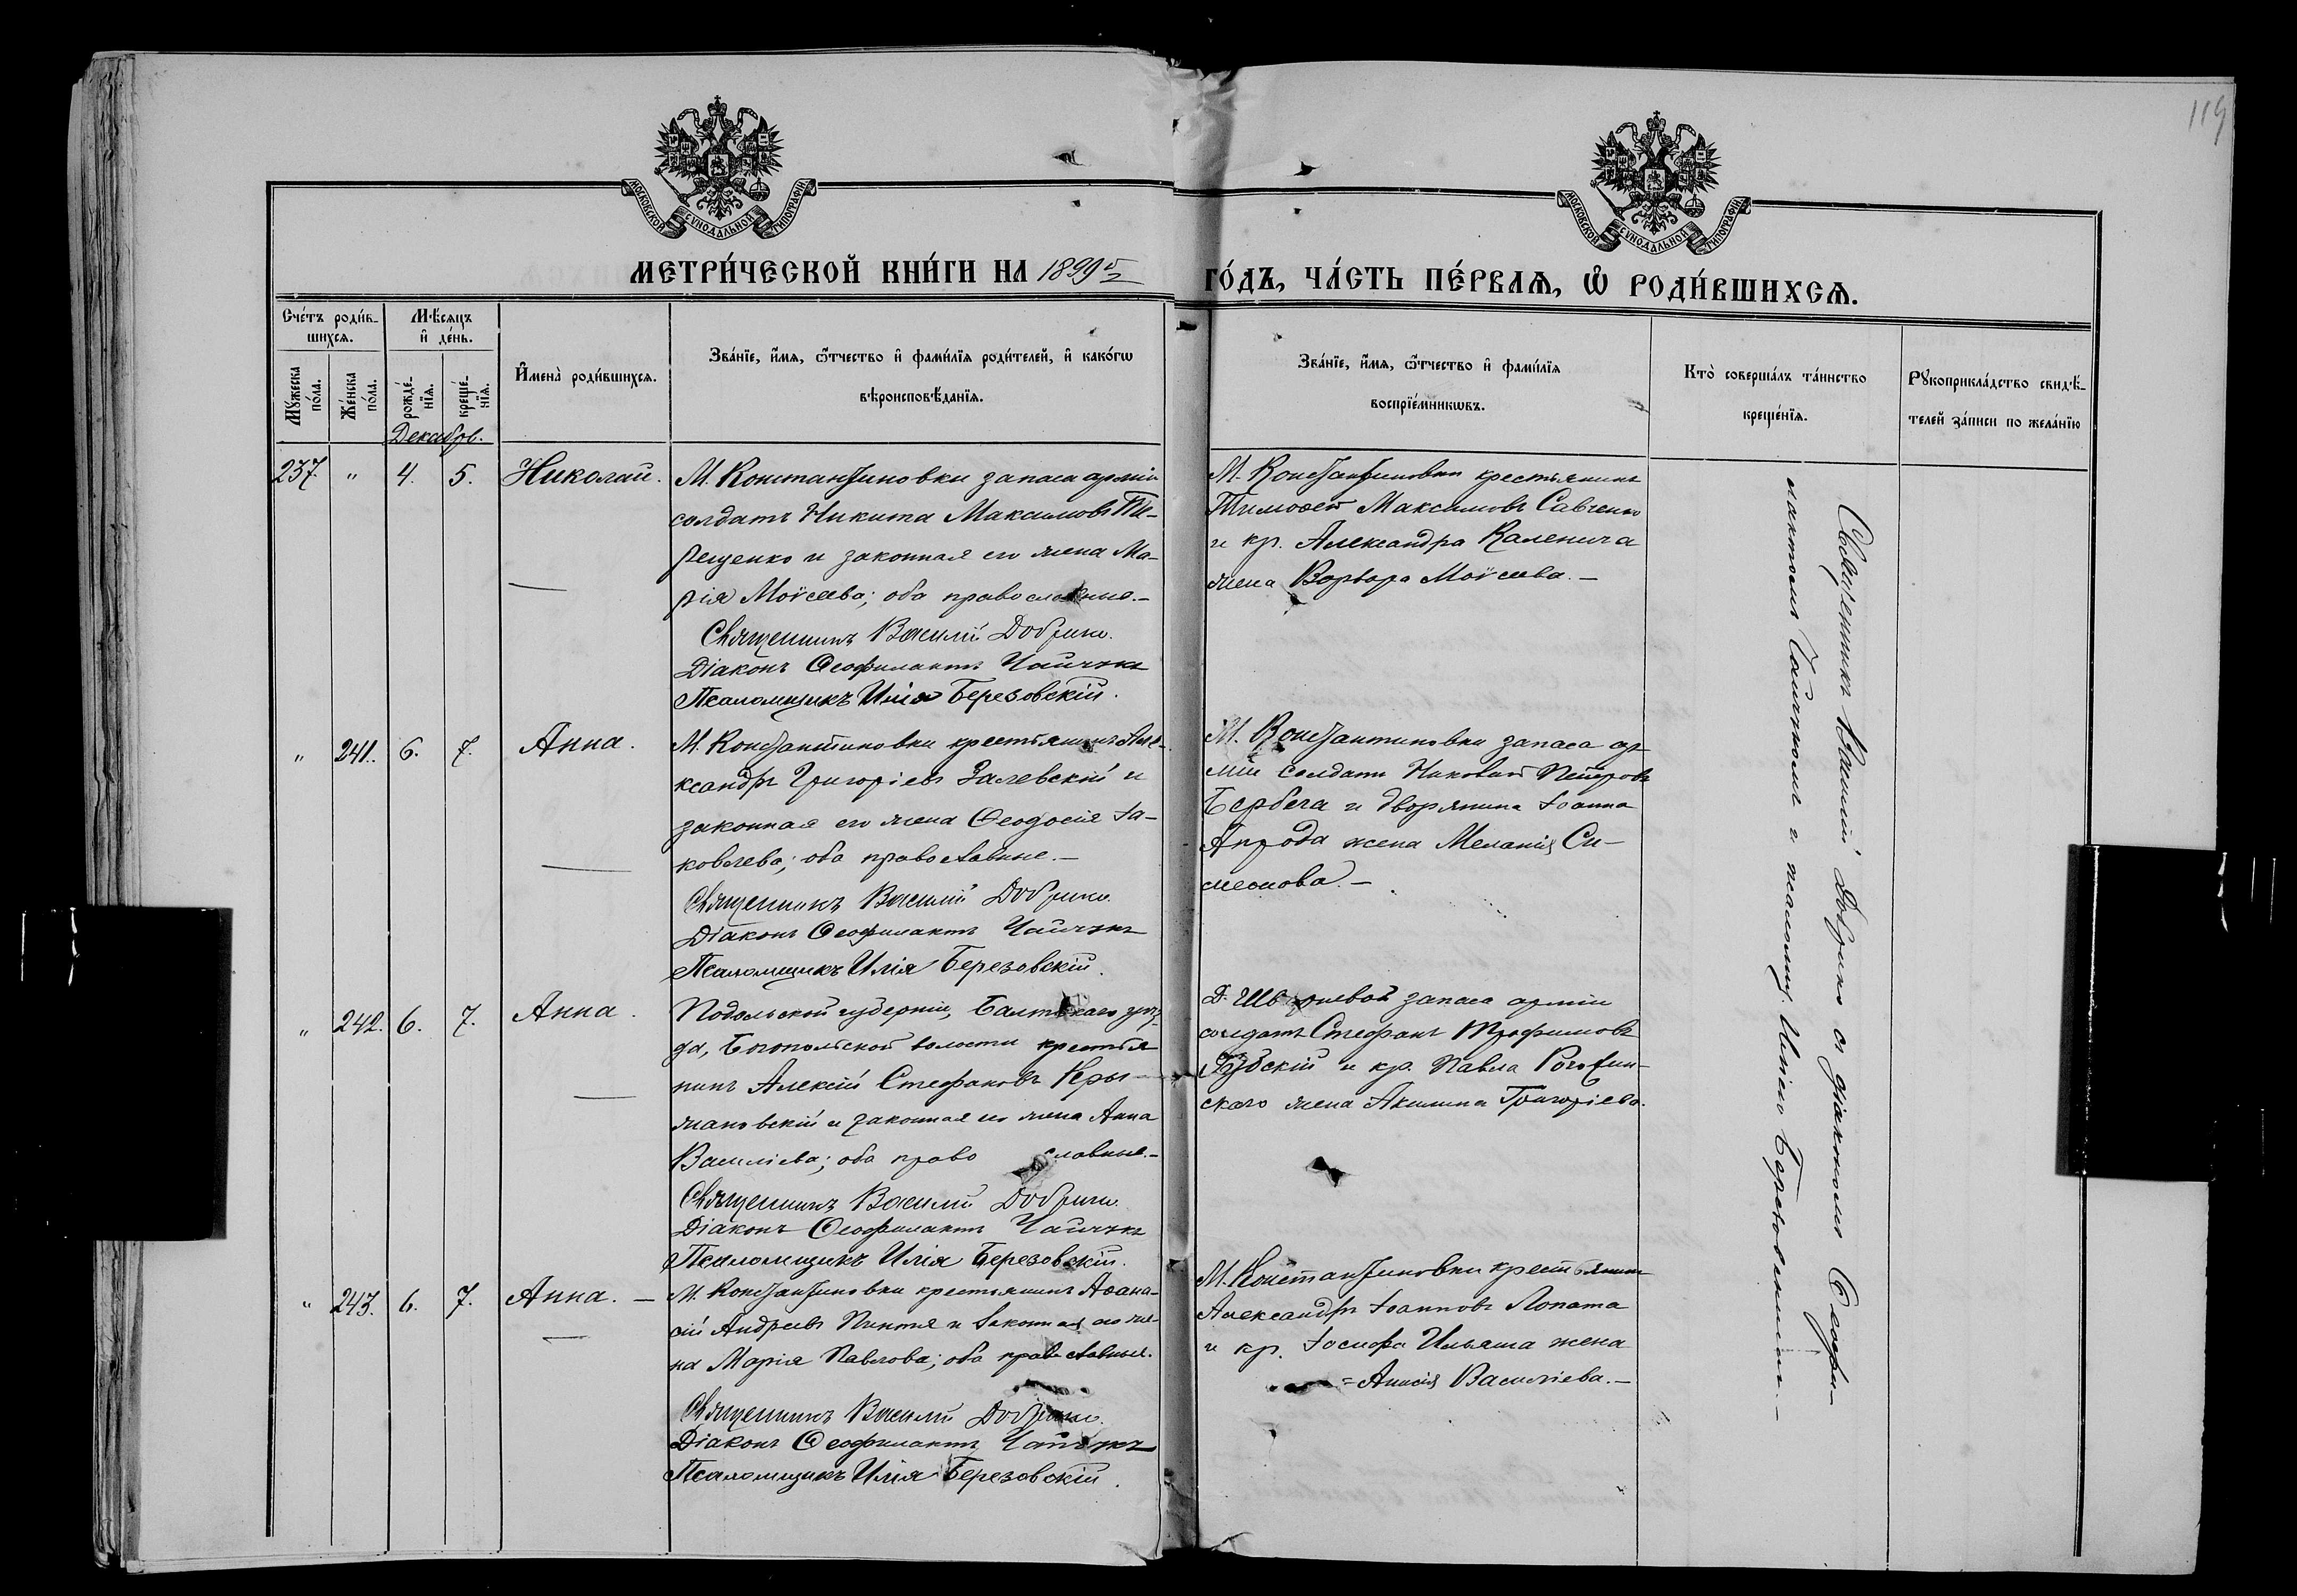 119
МОСКОВСКОЙ СѴНОДАЛЬНОЙ ТИПОГРАФІИ
МОСКОВСКОЙ СѴНОДАЛЬНОЙ ТИПОГРАФІИ
МЕТРИ́ЧЕСКОЙ КНИ́ГИ НА 1899й
ГО́ДЪ, ЧА́СТЬ ПЕ́РВАѦ, Ѽ РОДИ́ВШИХСѦ.
Сче́тъ роди́в-
шихсѧ.
Мꙋ́жеска по́ла.
Же́нска по́ла.
Мѣ́сяцъ и҆ де́нь.
рожде́-нїѧ.
креще́-нїѧ.
Декабрь.
И҆мена̀ роди́вшихсѧ.
Зва́нїе, и҆́мѧ, ѻ҆́тчество и҆ фами́лїѧ роди́телей, и҆ како́гѡ
вѣроисповѣ́данїѧ.
Зва́нїе, и҆́мѧ, ѻ҆́тчество и҆ фами́лїѧ
воспрїе́мникѡвъ.
Кто̀ соверша́лъ та́инство
креще́нїѧ.
Рꙋкоприкла́дство свидѣ́-
телей за́писи по жела́нїю
237. " 4. 5. Николай.
М. Константиновки запаса арміи
солдатъ Никита Максимовъ Ти-
рещенко и законная его жена Ма-
рія Моѵсеева; оба православные.-
Священникъ Василій Добрино.
Діаконъ Ѳеофилактъ Чайчукъ
Псаломщикъ Илія Березовскій.
М. Константиновки крестьянинъ
Тимоѳей Максимовъ Савченко
и кр. Александра Каленича
жена Варвара Моѵсеева.-
" 241. 6. 7. Анна.
М. Константиновки крестьянинъ Але-
ксандръ Григоріевъ Залевскій и
законная его жена Ѳеодосія Іа-
ковлева; оба православные.-
Священникъ Василій Добрино.
Діаконъ Ѳеофилактъ Чайчукъ
Псаломщикъ Илія Березовскій.
М. Константиновки запаса ар-
міи солдатъ Николай Петровъ
Бербега и дворянина Іоанна
жена Меланія Си-
меонова.-
" 242. 6. 7. Анна.
Подольской губерніи, Балтскаго уѣз-
да, Богопольской волости крестья
нинъ Алексій Стефановъ Кры-
жановскій и законная его жена Анна
Василіева; оба право славные.-
Священникъ Василій Добрино.
Діаконъ Ѳеофилактъ Чайчукъ
Псаломщикъ Илія Березовскій.
запаса арміи
солдатъ Стефанъ Трофимовъ
и кр. Павла
скаго жена Акилина Григоріева.
" 243. 6. 7. Анна. -
М. Константиновки крестьянинъ Аѳана-
сій Андреевъ Пинтя и законная его же-
на Марія Павлова; оба православные.
Священникъ Василій Добрино.
Діаконъ Ѳеофилактъ Чайчукъ
Псаломщикъ Илія Березовскій.
М. Константиновки крестьянинъ
Александръ Іоанновъ Лопата
и кр. Іосифа Ильяша жена
= Анисія Василіева.-
Священникъ Василій Добрино съ діакономъ Ѳеофи-
лактомъ Чайчукомъ и псаломщ. Иліею Березовскимъ.-